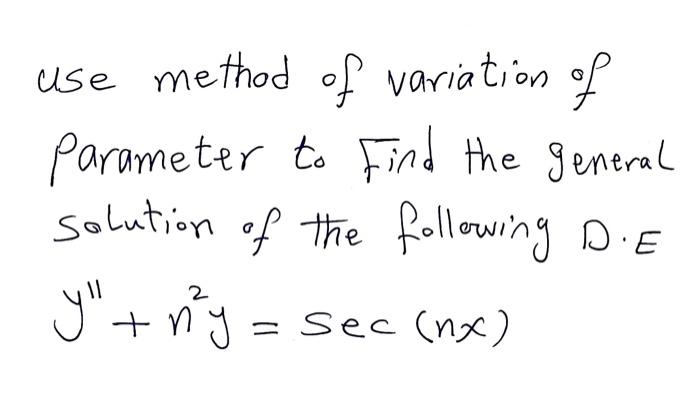 use method of variation of
Parameter to Find the general
solution of the following D.E
y'' + n²y = sec (nx)